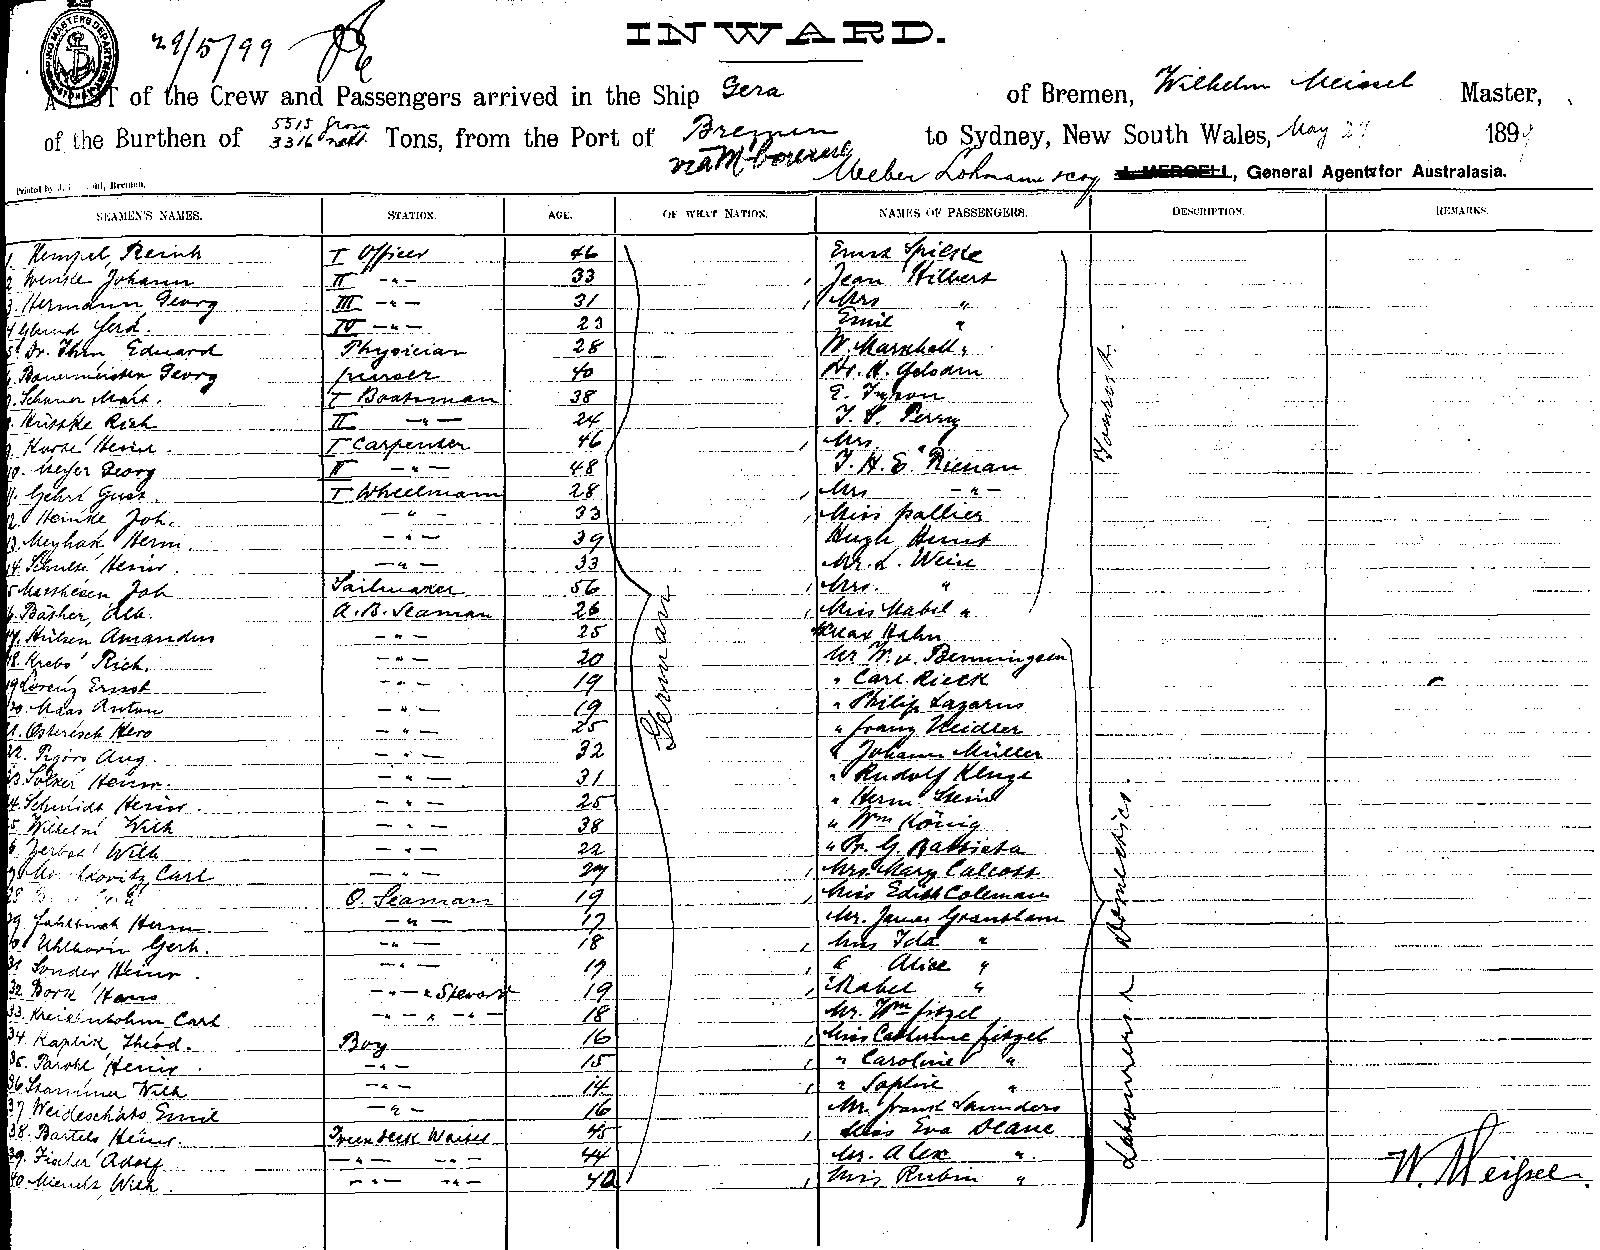 29/5/99
INWARD.
A LIST of the Crew and Passengers arrived in the Ship Gera of Bremen, Wilhelm Meissel Master,
of the Burthen of 5515 gross 3316 nett Tons, from the Port of Bremen via Melbourne to Sydney, New South Wales, May 29 1899
Weber Lohmann & Coy J. MERGELL, General Agents for Australasia.
Printed by J. Bremen.
SEAMEN'S NAMES. STATION. AGE. OF WHAT NATION. NAMES OF PASSENGERS. DESCRIPTION. REMARKS.
1. Hempel, Reinh I Officer 46 Ernst Spilske
2 Wenke Johann II -"- 33 Jean Hilbert
3. Hermann Georg III -"- 31 Mrs "
4 Ferd. IV -"- 23 Emil "
5. Dr. Eduard Physician 28 W. Marshall "
Bauermeister Georg purser 40 Dr. H.
I Boatsman 38 E. Tyron
Rich II -"- 24 T. S. Perry
9 Heinr. I Carpenter 46 Mrs "
10. Meyer Georg II -"- 48 T. H. E. Rienan
11. Gehrt Gust. I Wheelmann 28 Mrs -"-
12 Heinke Joh. -"- 33 Miss Pallier
13. Meyhak Herm. -"- 39 Hugh Hunt
14. Schulte Heinr. -"- 33 Mr. L. Weil
15 Matthesen Joh Sailmaker 56 Mrs. "
16. Bäsher, Alb. A. B. Seaman 26 Miss Mabel "
17. Hülsen Amandus -"- 25 Max Hahn
18. Krebs Rich. -"- 20 Mr W. v. Benningsen
19 Lorenz Ernst -"- 19 " Carl Rieck
20. Maas Anton -"- 19 " Philip Lazarus
21. Osterisch Hero -"- 25 " Franz Neidler
22. Pigors Aug. -"- 32 " Johann Müller
23 Sölker Heinr. -"- 31 " Rudolf Kluge
24. Schmidt Heinr. -"- 25 " Herm Stein
25 Wilhelmi Wilh -"- 38 " Wm König
26 Zerbst Wilh -"- 22 " Dr. G. Battista
27 Carl -"- 27 Mrs Mary Calcott
28 O. Seaman 19 Miss Edith Coleman
29 Fahlbusch Herm. -"- 17 Mr. James Grantham
30 Uhlhorn Gerh. -"- 18 Miss Ida "
31 Sonder Heinr. -"- 17 " Alice "
32 Bork Hans -"- " Steward 19 " Mabel "
33. Carl -"- " -"- 18 Mr. Wm Fitzel
34 Kaplik Theod. Boy 16 Miss Catherine Fitzel
35. Heinr. -"- 15 " Caroline "
36 Stammer Wilh -"- 14 " Sophie "
37 Emil -"- 16 Mr. Frank Saunders
38. Bartels Heinr. 45 Miss Eva Deane
39. Fischer Adolf -"- -"- 44 Mr. Alex "
40 Wilh. -"- -"- 40 Miss Rubin "
German
Tourist.
Labourers & Domestics.
W. Meissel.